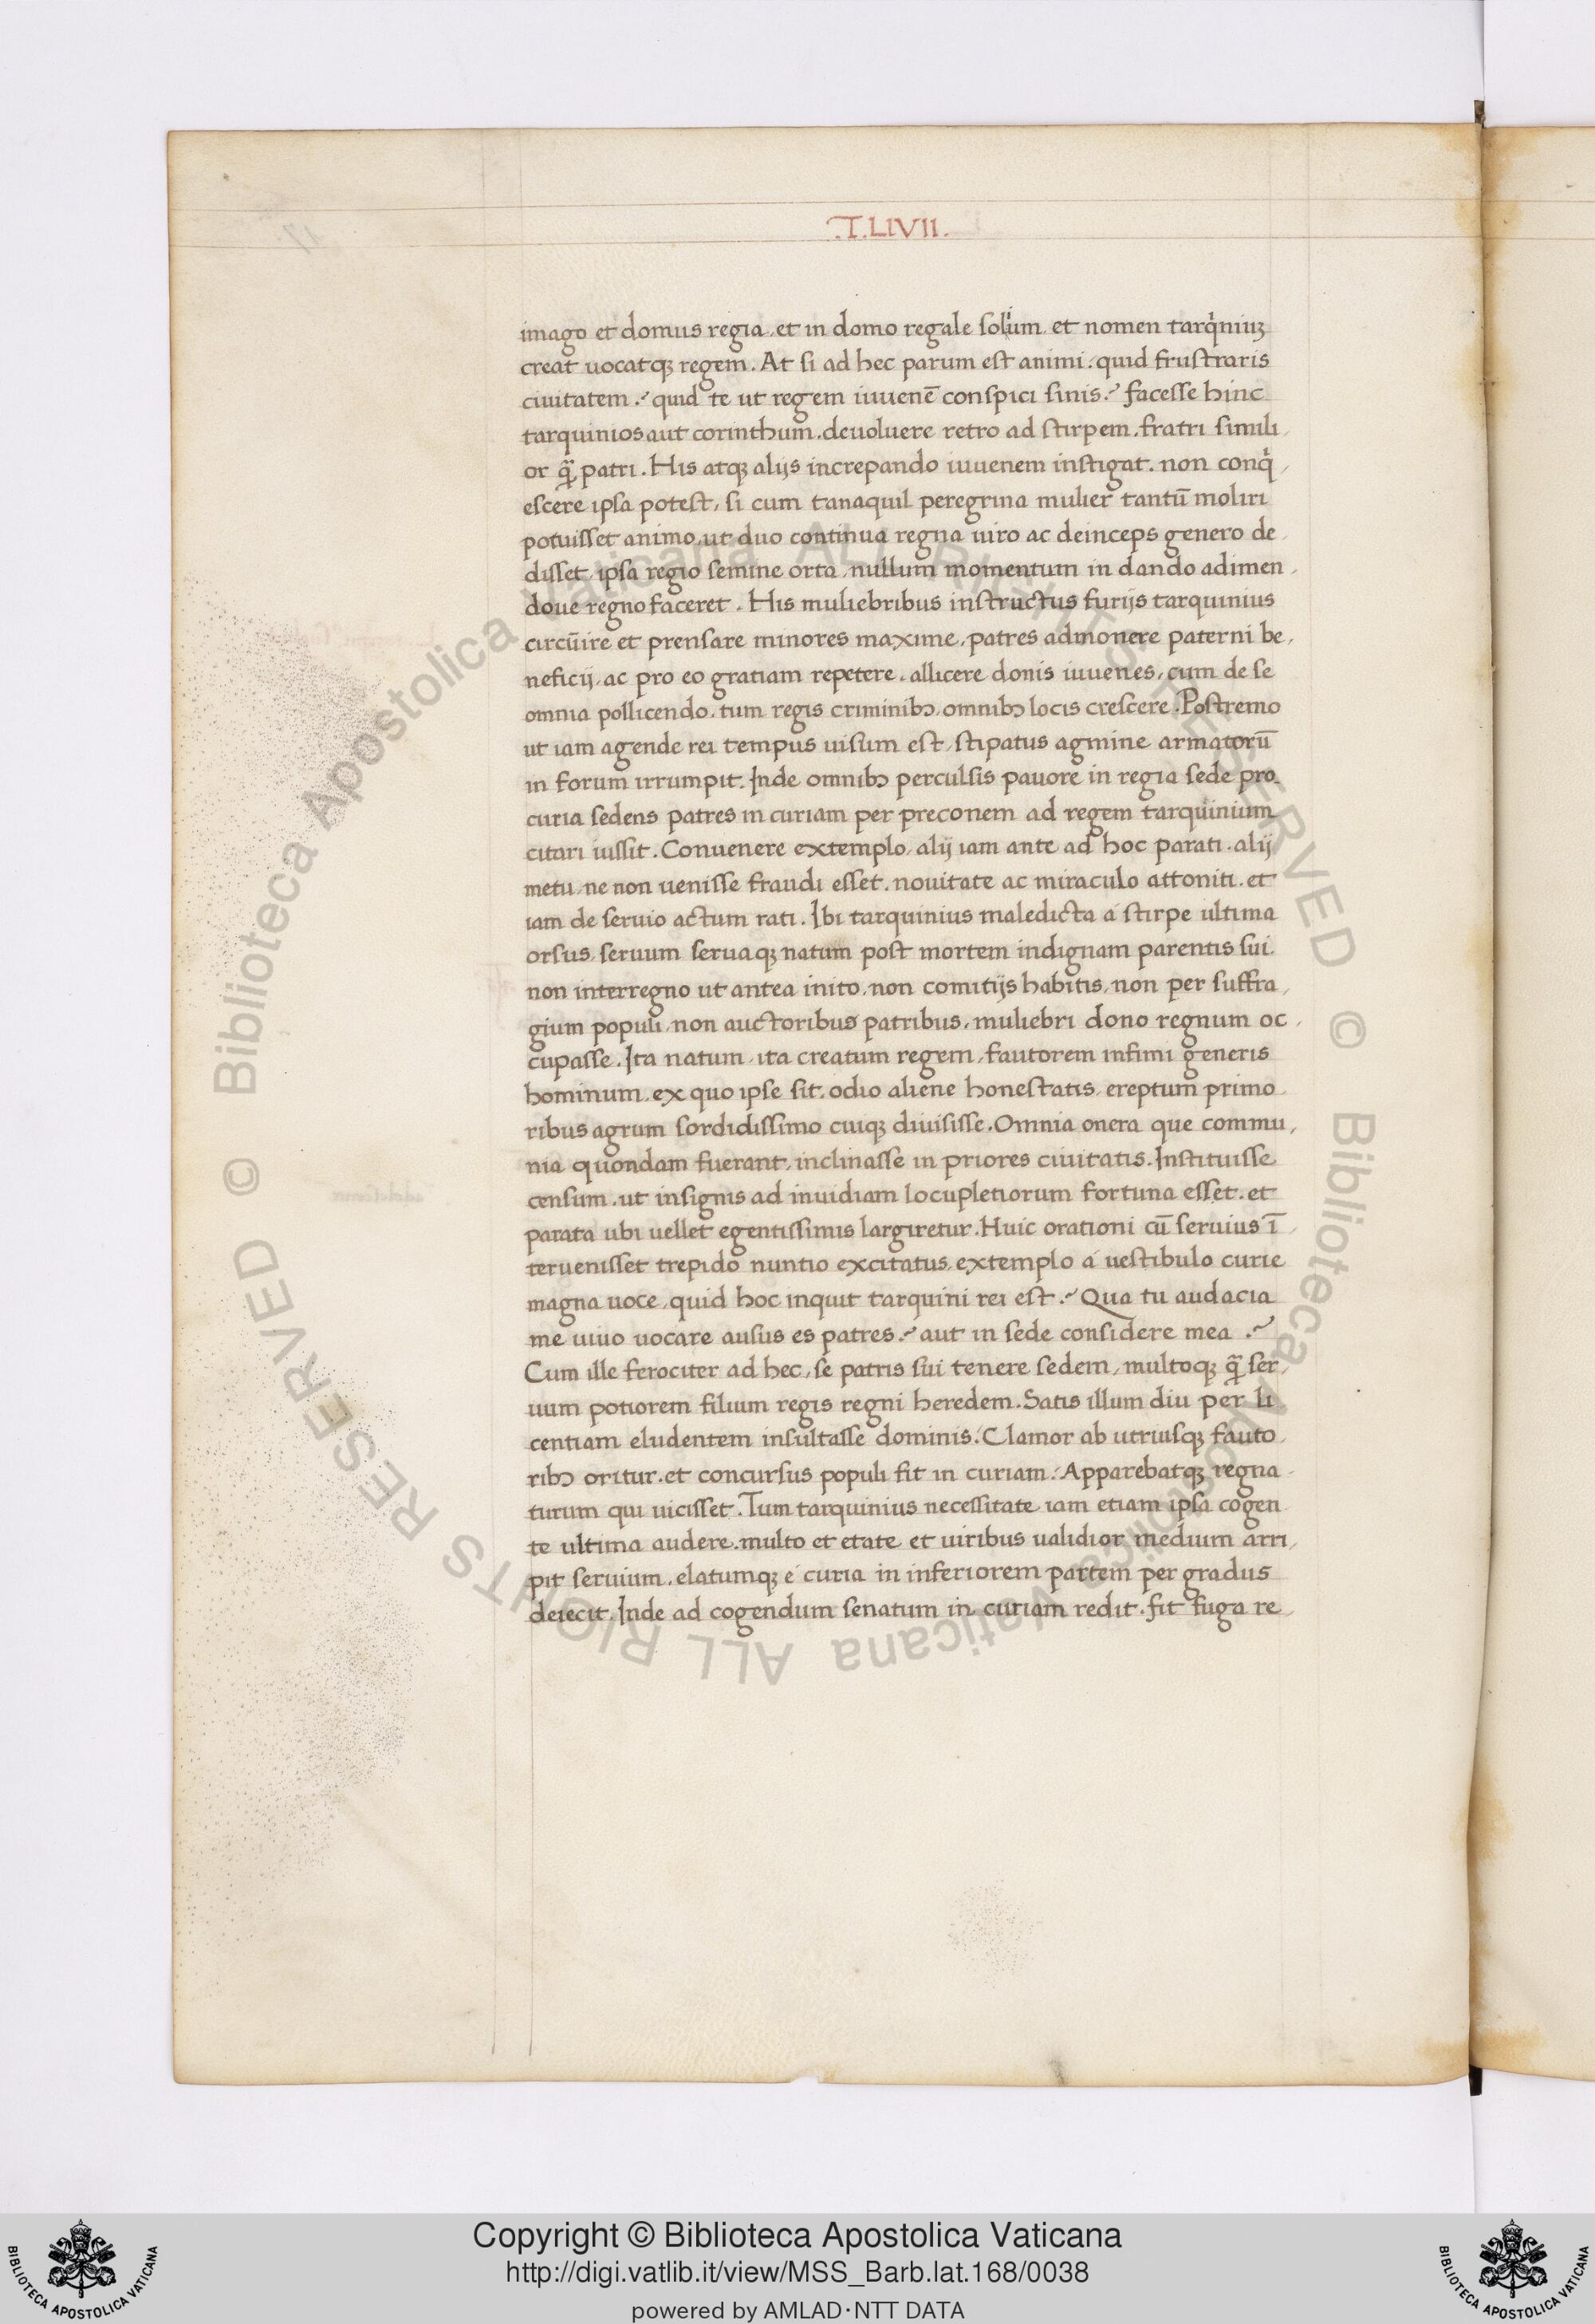 .T.LIVII.
imago et domus regia, et in domo regale solium et nomen tarq̇niuȝ
creat uocatqȝ regem. At si ad hec parum est animi. quid frustraris
ciuitatem? quid te ut regem iuuenē conspici sinis? facesse hinc
tarquinios aut corinthum. deuoluere retro ad stirpem. fratri simili,
or q̄ patri. His atqȝ alijs increpando iuuenem instigat. non conq̇,
escere ipsa potest, si cum tanaquil peregrina mulier tantū moliri
potuisset animo, ut duo continua regna uiro ac deinceps genero de,
disset, ipsa regio semine orta, nullum momentum in dando adimen,
doue regno faceret. His muliebribus instructus furijs tarquinius
circūire et prensare minores maxime, patres admonere paterni be,
neficij, ac pro eo gratiam repetere. allicere donis iuuenes, cum de se
omnia pollicendo, tum regis criminibꝫ, omnibꝫ locis crescere. Postremo
ut iam agende rei tempus uisum est, stipatus agmine armatorū
in forum irrumpit. Inde omnibꝫ perculsis pauore in regia sede pro
curia sedens patres in curiam per preconem ad regem tarquinium
citari iussit. Conuenere extemplo, alij iam ante ad hoc parati. alij
metu, ne non uenisse fraudi esset. nouitate ac miraculo attoniti. et
iam de seruio actum rati. Ibi tarquinius maledicta a stirpe ultima
orsus, seruum seruaqȝ natum post mortem indignam parentis sui
non interregno ut antea inito, non comitijs habitis, non per suffra,
gium populi, non auctoribus patribus, muliebri dono regnum oc,
cupasse. Ita natum, ita creatum regem, fautorem infimi generis
hominum, ex quo ipse sit. odio aliene honestatis, ereptum primo
ribus agrum sordidissimo cuiqȝ diuisisse. Omnia onera que commu,
nia quondam fuerant, inclinasse in priores ciuitatis. Instituisse
censum. ut insignis ad inuidiam locupletiorum fortuna esset. et
parata ubi uellet egentissimis largiretur. Huic orationi cū seruius ī,
teruenisset trepido nuntio excitatus, extemplo a uestibulo curie
magna uoce, quid hoc inquit tarquini rei est? Qua tu audacia
me uiuo uocare ausus es patres? aut in sede considere mea?
Cum ille ferociter ad hec, se patris sui tenere sedem, multoqȝ q̄ ser,
uum potiorem filium regis regni heredem. Satis illum diu per li
centiam eludentem insultasse dominis. Clamor ab utriusqȝ fauto,
ribꝫ oritur. et concursus populi fit in curiam. Apparebatqȝ regna,
turum qui uicisset. Tum tarquinius necessitate iam etiam ipsa cogen
te ultima audere. multo et etate et uiribus ualidior medium arri,
pit seruium. elatumqȝ e curia in inferiorem partem per gradus
deiecit. Inde ad cogendum senatum in curiam redit. fit fuga re,
© Biblioteca Apostolica Vaticana ALL RIGHTS RESERVED © Biblioteca Apostolica Vaticana ALL RIGHTS RESERVED
BIBLIOTECA APOSTOLICA VATICANA
Copyright © Biblioteca Apostolica Vaticana
http://digi.vatlib.it/view/MSS_Barb.lat.168/0038
powered by AMLAD·NTT DATA
BIBLIOTECA APOSTOLICA VATICANA